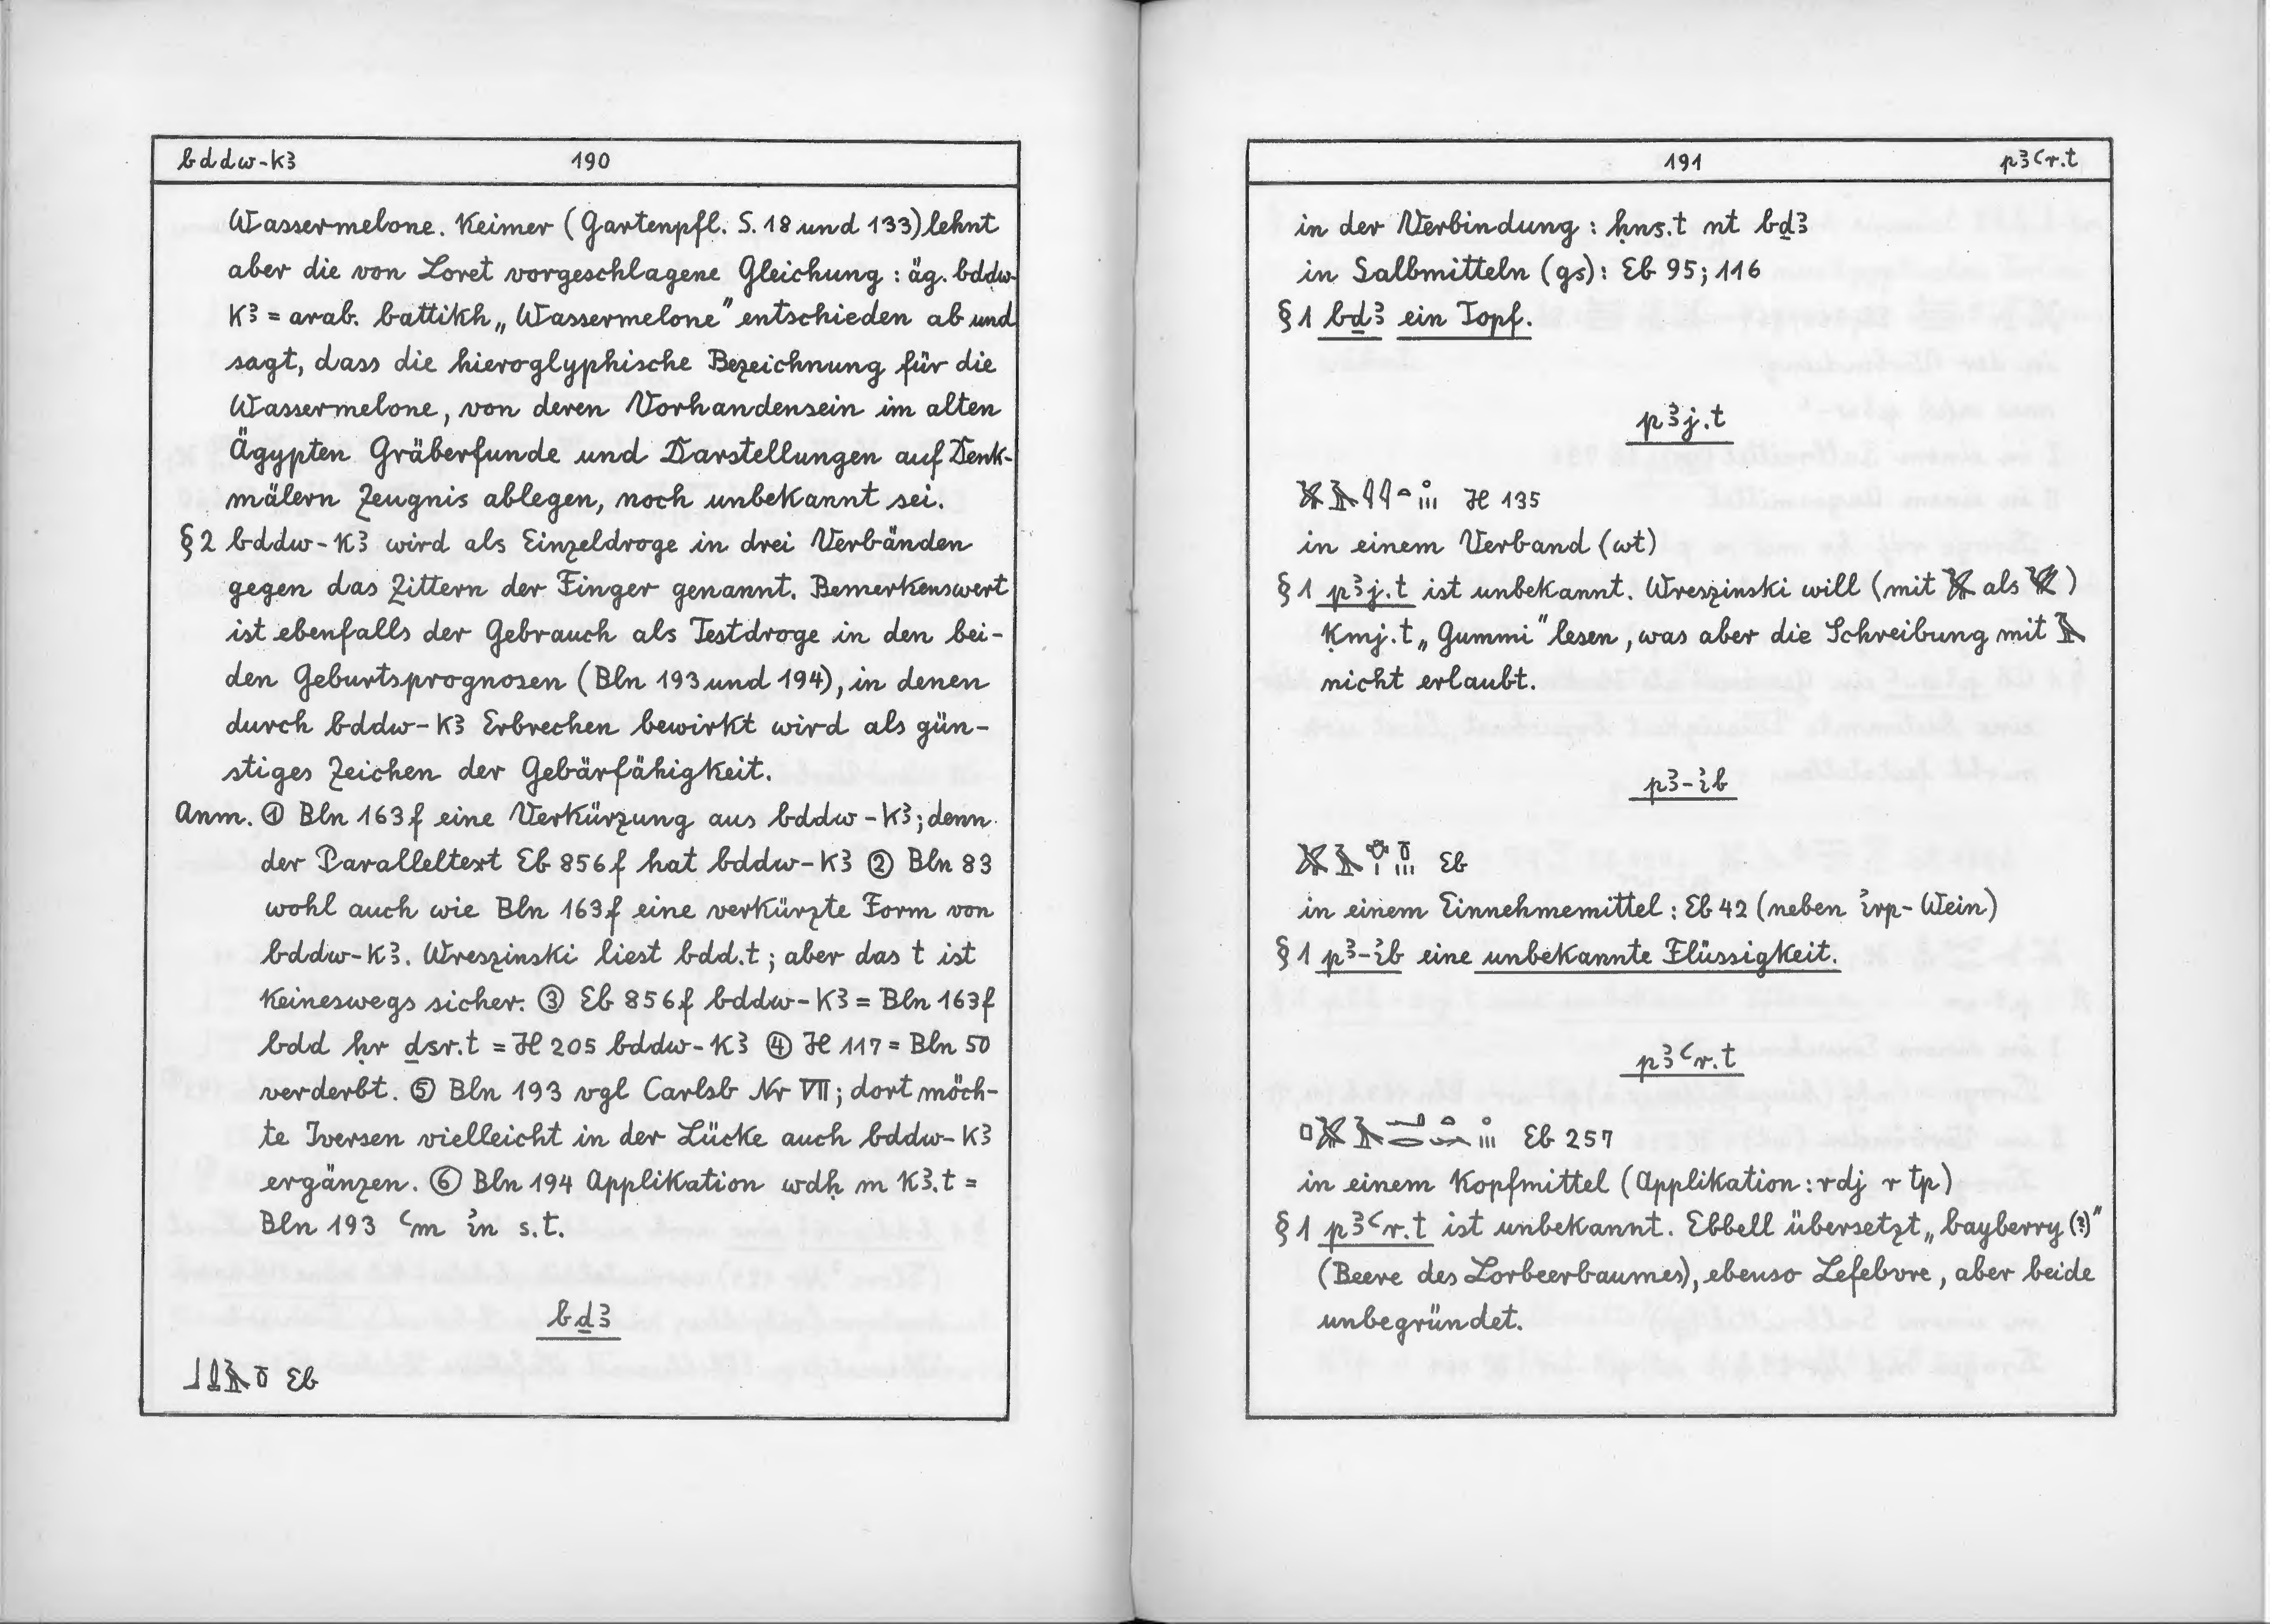 bddw-kꜣ 190
Wassermelone. Keimer (Gartenpfl. S. 18 und 133) lehnt
aber die von Loret vorgeschlagene Gleichung: äg. bddw-
kꜣ = arab. battikh „Wassermelone" entschieden ab und
sagt, dass die hieroglyphische Bezeichnung für die
Wassermelone, von deren Vorhandensein im alten
Ägypten Gräberfunde und Darstellungen auf Denk-
mälern Zeugnis ablegen, noch unbekannt sei.
§ 2 bddw-kꜣ wird als Einzeldroge in drei Verbänden
gegen das Zittern der Finger genannt. Bemerkenswert
ist ebenfalls der Gebrauch als Testdroge in den bei-
den Geburtsprognosen (Bln 193 und 194), in denen
durch bddw-kꜣ Erbrechen bewirkt wird als gün-
stiges Zeichen der Gebärfähigkeit.
Anm. ① Bln 163f eine Verkürzung aus bddw-kꜣ; denn
der Paralleltext Eb 856f hat bddw-kꜣ ② Bln 83
wohl auch wie Bln 163f eine verkürzte Form von
bddw-kꜣ. Wreszinski liest bdd.t; aber das t ist
keineswegs sicher. ③ Eb 856f bddw-kꜣ = Bln 163f
bdd ḥr ḏsr.t = H 205 bddw-kꜣ ④ H 117 = Bln 50
verderbt. ⑤ Bln 193 vgl Carlsb Nr VII; dort möch-
te Iversen vielleicht in der Lücke auch bddw-kꜣ
ergänzen. ⑥ Bln 194 Applikation wdḥ m kꜣ.t =
Bln 193 ꜥm ꞽn s.t.
bḏꜣ
𓃀𓍑𓄿𓏊 Eb
191 pꜣꜥr.t
in der Verbindung: ḥns.t nt bḏꜣ
in Salbmitteln (gs): Eb 95; 116
§ 1 bḏꜣ ein Topf.
pꜣj.t
𓅮𓄿𓇋𓇋𓏏𓈒𓏥 H 135
in einem Verband (wt)
§ 1 pꜣj.t ist unbekannt. Wreszinski will (mit 𓅮 als 𓆎)
ḳmj.t „Gummi" lesen, was aber die Schreibung mit 𓄿
nicht erlaubt.
pꜣ-ꞽb
𓅮𓄿𓄣𓏤𓏊𓏥 Eb
in einem Einnehmemittel: Eb 42 (neben ꞽrp-Wein)
§ 1 pꜣ-ꞽb eine unbekannte Flüssigkeit.
pꜣꜥr.t
𓊪𓅮𓄿𓂝𓂋𓏏𓈒𓏥 Eb 257
in einem Kopfmittel (Applikation: rdj r tp)
§ 1 pꜣꜥr.t ist unbekannt. Ebbell übersetzt „bayberry (?)"
(Beere des Lorbeerbaumes), ebenso Lefebvre, aber beide
unbegründet.